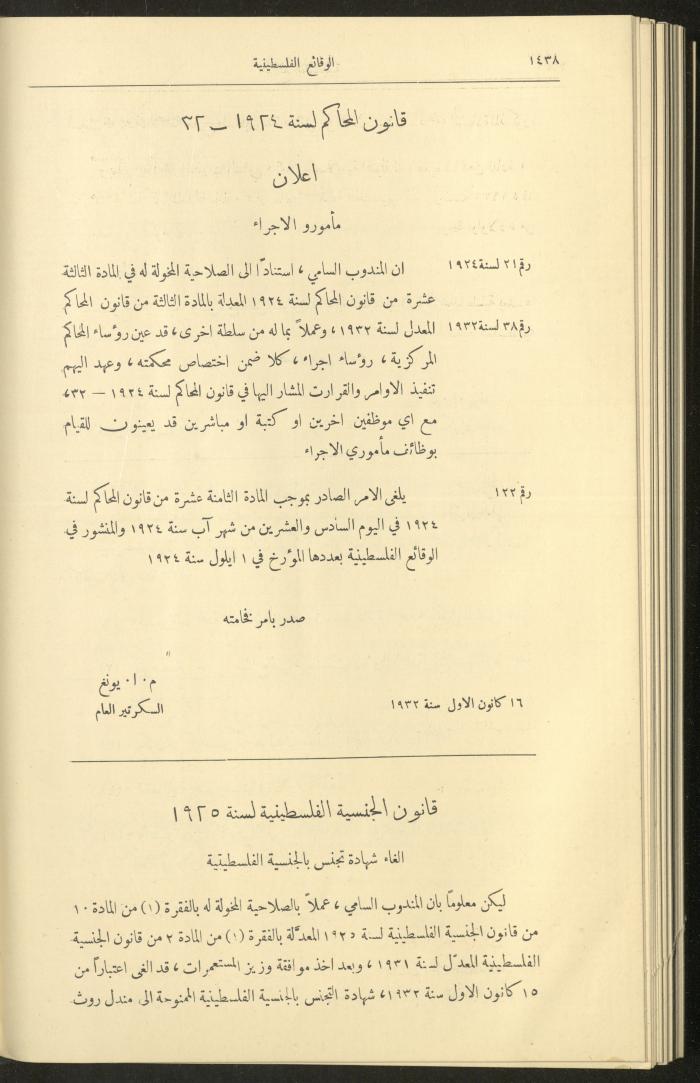 ١٤٣٨ الوقائع الفلسطينية
قانون المحاكم لسنة ١٩٢٤ – ٣٢
اعلان
مأمورو الاجراء
رقم ٢١ لسنة ١٩٢٤ ان المندوب السامي، استناداً الى الصلاحية المخولة له في المادة الثالثة
عشرة من قانون المحاكم لسنة ١٩٢٤ المعدلة بالمادة الثالثة من قانون المحاكم
رقم ٣٨ لسنة ١٩٣٢ المعدل لسنة ١٩٣٢، وعملاً بما له من سلطة اخرى، قد عين رؤساء المحاكم
المركزية، رؤساء اجراء، كلا ضمن اختصاص محكمته، وعهد اليهم
تنفيذ الاوامر والقرارت المشار اليها في قانون المحاكم لسنة ١٩٢٤ – ٣٢،
مع اي موظفين اخرين او كتبة او مباشرين قد يعينون للقيام
بوظائف مأموري الاجراء
رقم ١٢٢ يلغى الامر الصادر بموجب المادة الثامنة عشرة من قانون المحاكم لسنة
١٩٢٤ في اليوم السادس والعشرين من شهر آب سنة ١٩٢٤ والمنشور في
الوقائع الفلسطينية بعددها المؤرخ في ١ ايلول سنة ١٩٢٤
صدر بامر فخامته
م. ا. يونغ
١٦ كانون الاول سنة ١٩٣٢ السكرتير العام
قانون الجنسية الفلسطينية لسنة ١٩٢٥
الغاء شهادة تجنس بالجنسية الفلسطينية
ليكن معلوماً بان المندوب السامي، عملاً بالصلاحية المخولة له بالفقرة (١) من المادة ١٠
من قانون الجنسية الفلسطينية لسنة ١٩٢٥ المعدَّلة بالفقرة (١) من المادة ٢ من قانون الجنسية
الفلسطينية المعدّل لسنة ١٩٣١، وبعد اخذ موافقة وزير المستعمرات، قد الغى اعتباراً من
١٥ كانون الاول سنة ١٩٣٢، شهادة التجنس بالجنسية الفلسطينية الممنوحة الى مندل روث